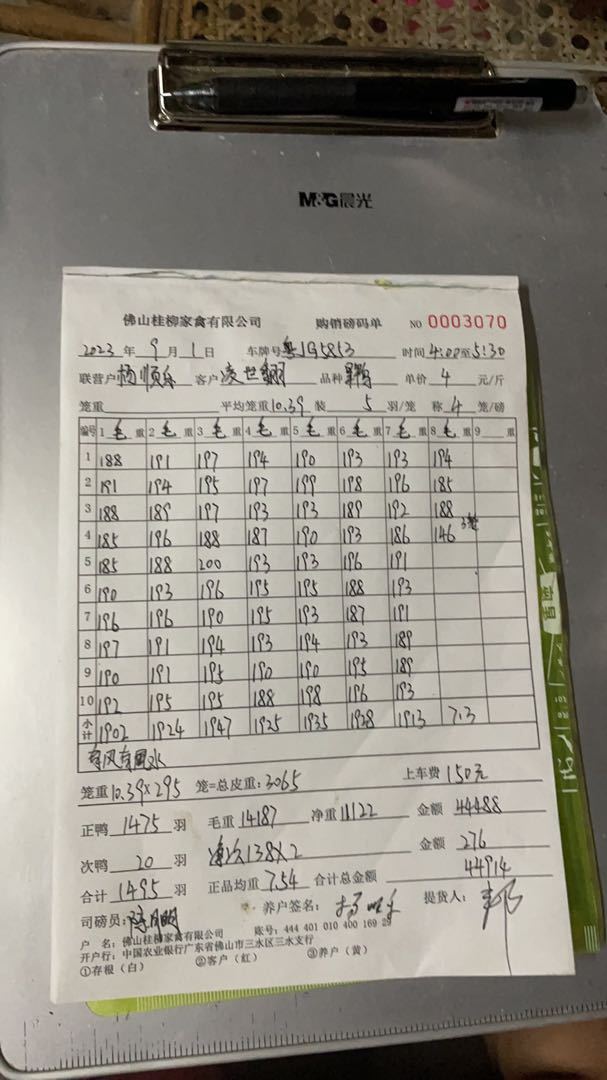 M&G晨光
佛山桂柳家禽有限公司 购销磅码单 NO 0003070
2023 年 9 月 1 日 车牌号 粤JG5853 时间 4:00至5:30
联营户 杨顺 客户 凌世 品种 单价 4 元/斤
笼重 平均笼重 10.39 装 5 羽/笼 称 4 笼/磅
编号 1 毛 重 2 毛 重 3 毛 重 4 毛 重 5 毛 重 6 毛 重 7 毛 重 8 毛 重 9 重
1 188 191 197 194 190 193 193 194
2 191 194 195 197 199 198 196 185
3 188 189 197 193 193 189 192 188
4 185 196 188 187 190 193 186 146 3笼
5 185 188 200 193 193 196 191
6 190 193 196 195 195 188 193
7 196 196 190 195 193 187 191
8 197 191 194 193 194 193 189
9 190 191 195 190 190 195 189
10 192 195 195 188 198 196 193
小计 1902 1924 1947 1925 1935 1938 1913 713
有风有雨水
笼重 10.39×295 笼=总皮重: 3065 上车费 150元
正鸭 1475 羽 毛重 14187 净重 11122 金额 44488
次鸭 20 羽 138×2 金额 276
合计 1495 羽 正品均重 7.54 合计总金额 44914
司磅员: 养户签名: 提货人:
户 名: 佛山桂柳家禽有限公司 账号: 444 401 010 400 169 29
开户行: 中国农业银行广东省佛山市三水区三水支行
①存根(白) ②客户(红) ③养户(黄)